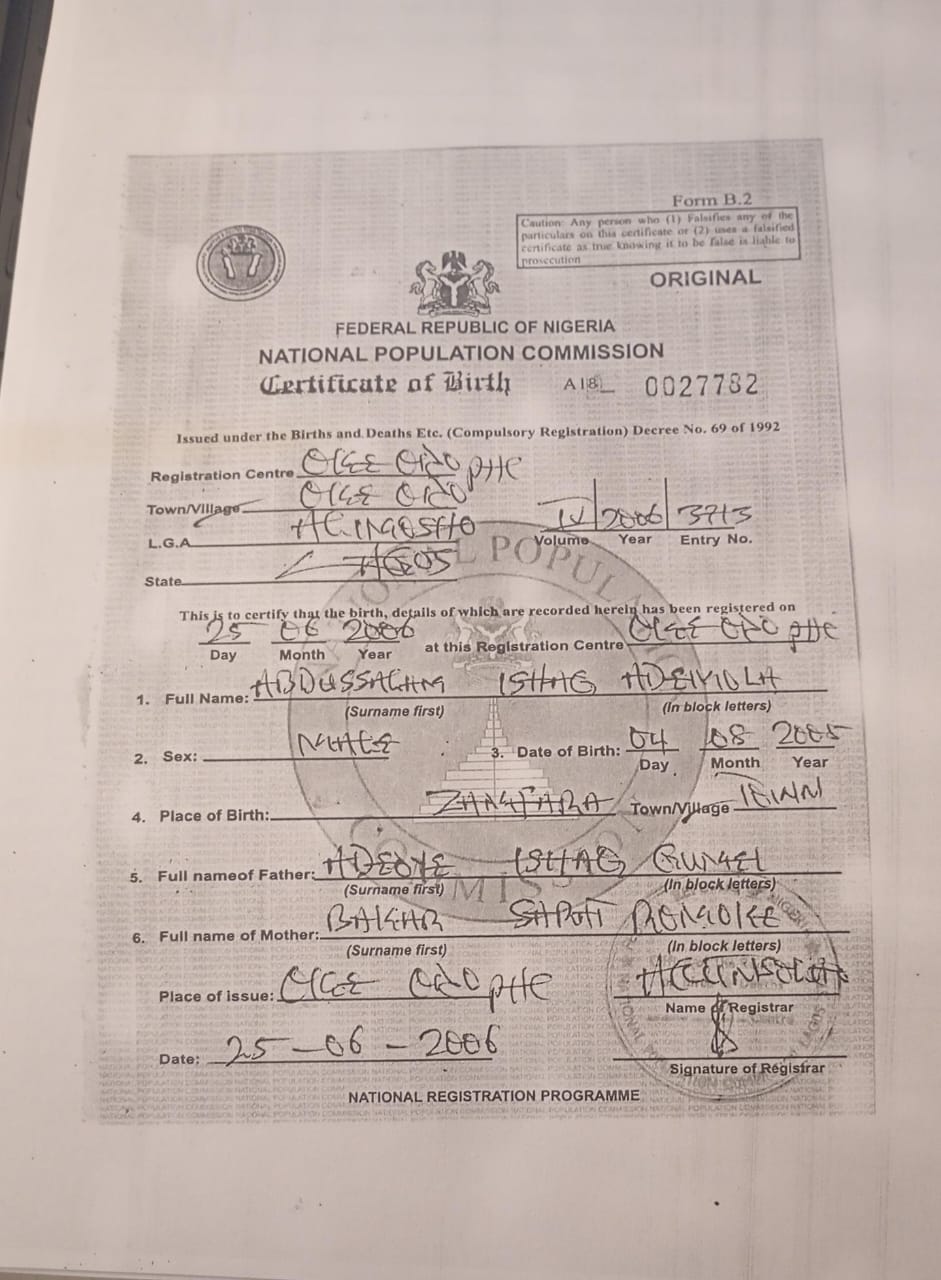 Form B.2
Caution: Any person who (1) Falsifies any of the
particulars on this certificate or (2) uses a falsified
certificate as true knowing it to be false is liable to
prosecution
ORIGINAL
FEDERAL REPUBLIC OF NIGERIA
NATIONAL POPULATION COMMISSION
Certificate of Birth A18L 0027782
Issued under the Births and Deaths Etc. (Compulsory Registration) Decree No. 69 of 1992
Registration Centre OKE ODO PHC
Town/Village OKE ODO
L.G.A ALIMOSHO IV 2006 3713
Volume Year Entry No.
State LAGOS
This is to certify that the birth, details of which are recorded herein has been registered on
25 06 2006 at this Registration Centre OKE ODO PHC
Day Month Year
1. Full Name: ABDUSSALAM ISHAQ ADEIYIOLA
(Surname first) (In block letters)
2. Sex: MALE 3. Date of Birth: 04 08 2005
Day Month Year
4. Place of Birth: ZAMFARA Town/Village TOWN
5. Full name of Father: ADEOYE ISHAQ
(Surname first) (In block letters)
6. Full name of Mother: BAKAR
(Surname first) (In block letters)
Place of issue: OKE ODO PHC
Name of Registrar
Date: 25-06-2006
Signature of Registrar
NATIONAL REGISTRATION PROGRAMME